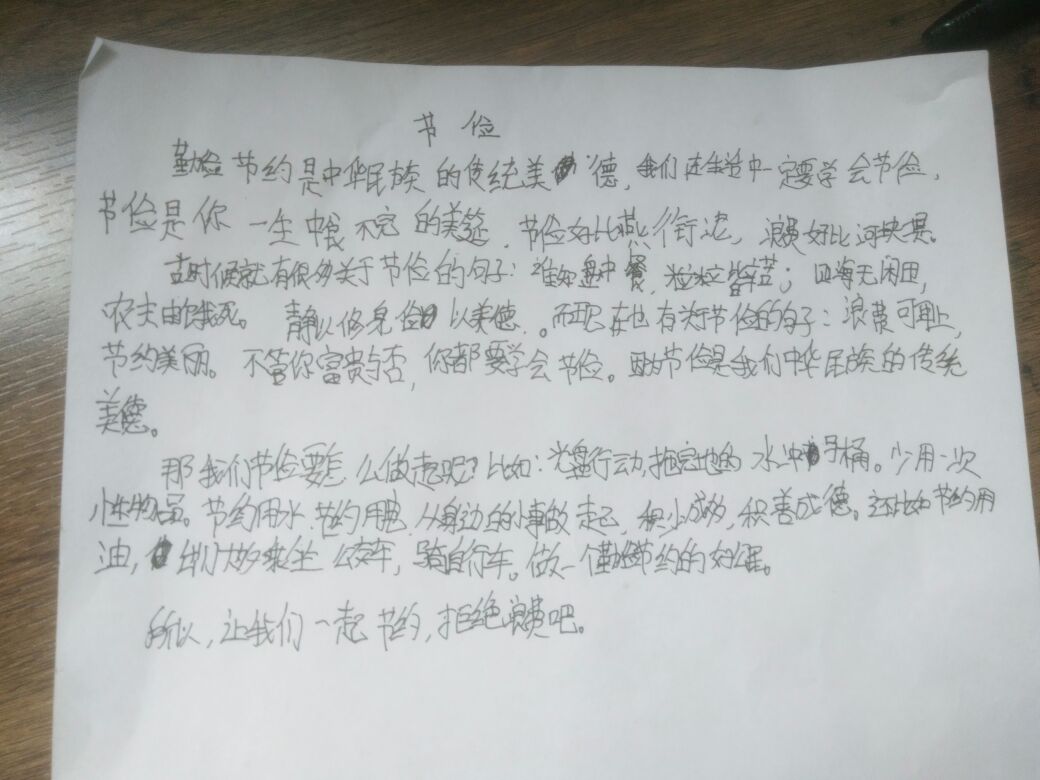 节俭
勤俭节约是中华民族的传统美德，我们在生活中一定要学会节俭，
节俭是你一生中食不完的美筵．节俭好比燕衔泥，浪费好比河决堤。
古时候就有很多关于节俭的句子：谁知盘中餐，粒粒皆辛苦；四海无闲田，
农夫由饿死。静以修身俭以美德．。而现在也有关于节俭的句子：浪费可耻，
节约美丽。不管你富贵与否，你都要学会节俭。因为节俭是我们中华民族的传统
美德。
那我们节俭要怎么做起呢？比如：光盘行动，拖完地的水冲马桶。少用一次
性物品。节约用水．节约用电．从身边的小事做起，积少成多，积善成德。还比如节约用
油，出门大多乘坐公交车，骑自行车。做一个勤俭节约的好公民。
所以，让我们一起节约，拒绝浪费吧。